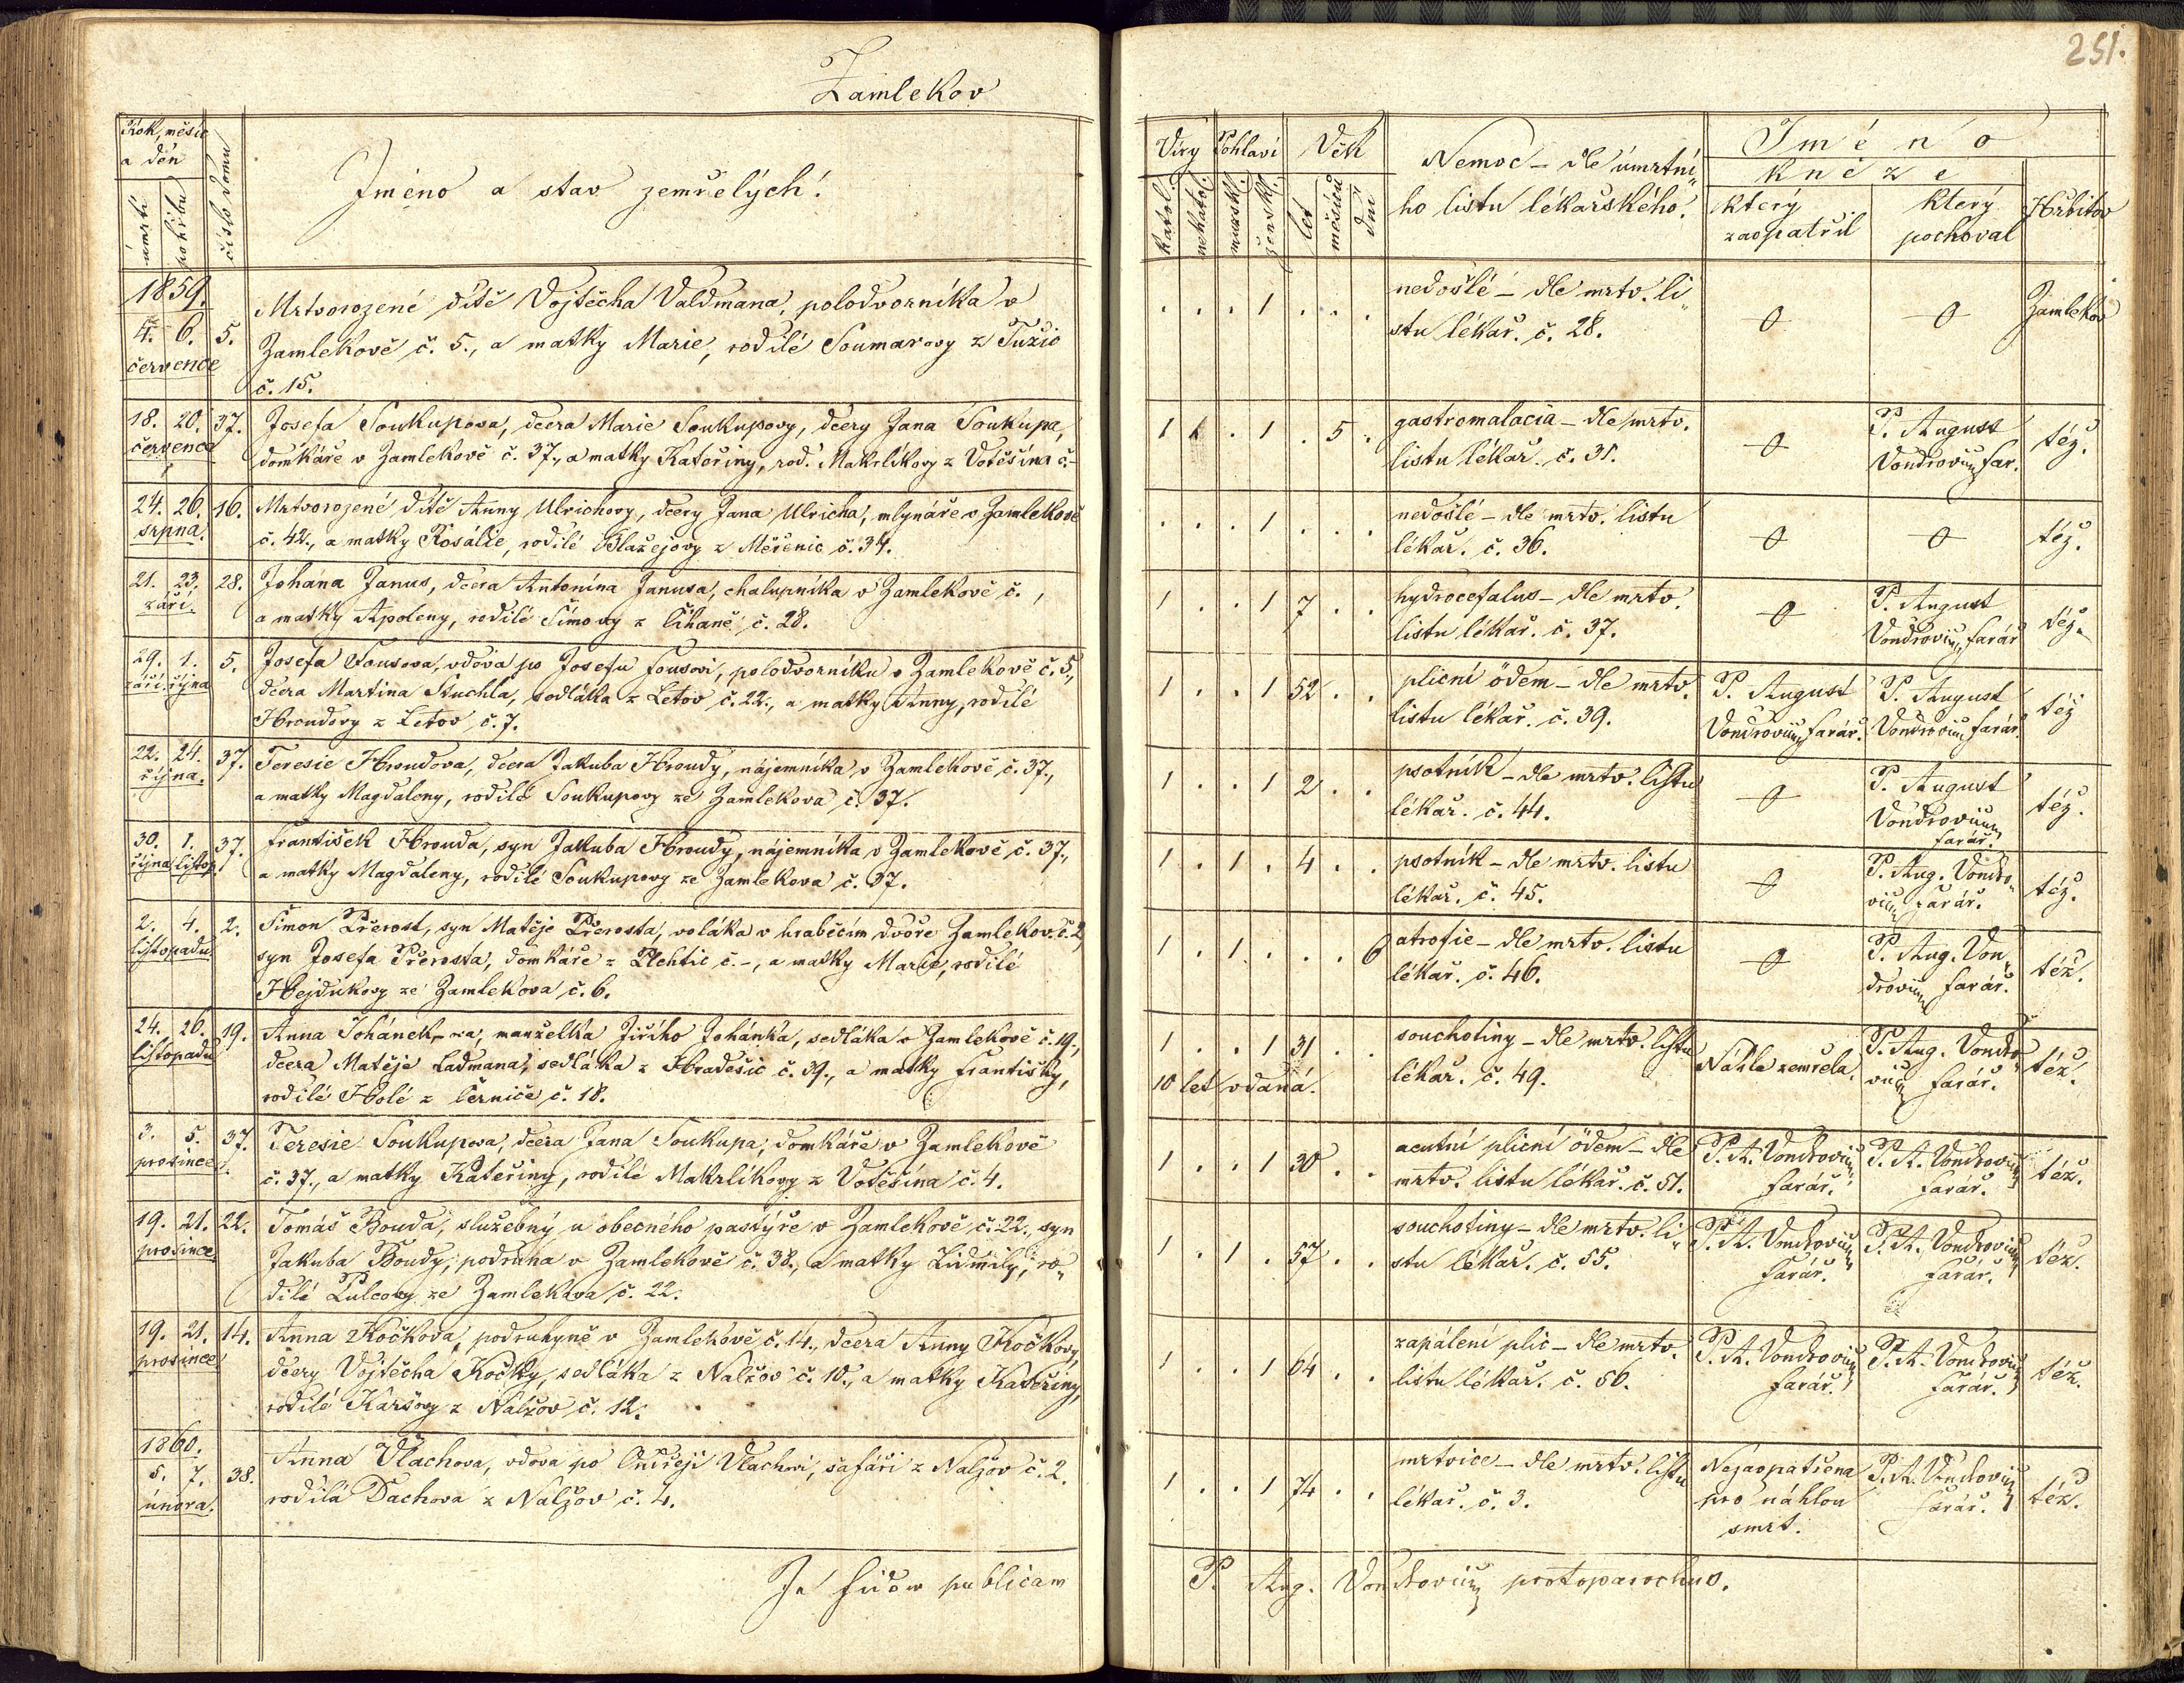 251.
Zamlekov
Rok, měsíc
a den
úmrtí
pohřbu
číslo domu
Jméno a stav zemřelých.
1859.
4. 6. 5.
července
Mrtvorozené dítě Vojtěcha Valdmana, polodvorníka v
Zamlekově č. 5., a matky Marie, rodilé Soumarovy z Tužic
č. 15.
18. 20. 37.
července
Josefa Soukupova, dcera Marie Soukupovy, dcery Jana Soukupa,
domkáře v Zamlekově č. 37., a matky Kateřiny, rod. Makrlíkovy z Votěšína č.-
24. 26. 16.
srpna.
Mrtvorozené dítě Anny Ulrichovy, dcery Jana Ulricha, mlynáře v Zamlekově
č. 42., a matky Rosálie, rodilé Blažejovy z Měřenic č. 34.
21. 23. 28.
září.
Johana Janus, dcera Antonína Janusa, chalupníka v Zamlekově č. ,
a matky Apoleny, rodilé Šímovy z Čihaně č. 28.
29. 1. 5.
září. října
Josefa Fousova, vdova po Josefu Fousovi, polodvorníku v Zamlekově č. 5.,
dcera Martina Stuchla, sedláka z Letov č. 22., a matky Anny, rodilé
Hroudovy z Letov č. 7.
22. 24. 37.
října.
Teresie Hroudova, dcera Jakuba Hroudy, nájemníka v Zamlekově č. 37.,
a matky Magdaleny, rodilé Soukupovy ze Zamlekova č. 37.
30. 1. 37.
října listop.
František Hrouda, syn Jakuba Hroudy, nájemníka v Zamlekově č. 37.,
a matky Magdaleny, rodilé Soukupovy ze Zamlekova č. 37.
2. 4. 2.
listopadu.
Šimon Přerost, syn Matěje Přerosta, voláka v hraběcím dvoře Zamlekov. č. 2,
syn Josefa Přerosta, domkáře z Plchtic č. -, a matky Marie, rodilé
Hejdukovy ze Zamlekova č. 6.
24. 26. 19.
listopadu
Anna Johánek-ova, manželka Jiřího Johánka, sedláka v Zamlekově č. 19.,
dcera Matěje Ladmana, sedláka z Hradešic č. 39., a matky Františky,
rodilé Holé z Černíče č. 18.
3. 5. 37.
prosince
Teresie Soukupova, dcera Jana Soukupa, domkáře v Zamlekově
č. 37., a matky Kateřiny, rodilé Makrlíkovy z Votěšína č. 4.
19. 21. 22.
prosince
Tomáš Bouda, služebný u obecného pastýře v Zamlekově č. 22., syn
Jakuba Boudy, podruha v Zamlekově č. 38., a matky Lidmily, ro„
dilé Pulcovy ze Zamlekova č. 22.
19. 21. 14.
prosince
Anna Kočkova, podruhyně v Zamlekově č. 14., dcera Anny Kočkovy,
dcery Vojtěcha Kočky, sedláka z Nalžov č. 10., a matky Kateřiny,
rodilé Karšovy z Nalžov č. 12.
1860.
5. 7. 38.
února.
Anna Vlachova, vdova po Ondřeji Vlachovi, šafáři z Nalžov č. 2.
rodilá Dachova z Nalžov č. 4.
In fidem publicam
Víry Pohlaví Věk
katol. nekatol. mužsk. žensk. let měsíců dní
Nemoc - dle úmrtní„
ho listu lékařského.
Jméno
kněze
který
zaopatřil
který
pochoval
Hřbitov
. . . 1 . . .
nedošlé - dle mrtv. li„
stu lékař. č. 28.
0 0 Zamlekov
1 1 . 1 . 5 .
gastromalacia - dle mrtv.
listu lékař. č. 31.
0
P. August
Vondrovium far.
též.
. . . 1 . . .
nedošlé - dle mrtv. listu
lékař. č. 36.
0 0 též.
1 . . 1 7 . .
hydrocefalus - dle mrtv.
listu lékař. č. 37.
0
P. August
Vondrovium farář
též.
1 . . 1 52 . .
plicní ödem - dle mrtv.
listu lékař. č. 39.
P. August
Vondrovium farář.
P. August
Vondrovium farář.
též
1 . . 1 2 . .
psotník - dle mrtv. listu
lékař. č. 44.
0
P. August
Vondrovium
farář.
též.
1 . 1 . 4 . .
psotník - dle mrtv. listu
lékař. č. 45.
0
P. Aug. Vondro„
vium farář.
též.
1 . 1 . . . 6
atrofie - dle mrtv. listu
lékař. č. 46.
0
P. Aug. Von„
drovium farář.
též.
1 . . 1 31 . .
10 let vdaná.
souchotiny - dle mrtv. listu
lékař. č. 49.
Náhle zemřela.
P. Aug. Vondro„
vium farář.
též.
1 . . 1 30 . .
acutní plicní ödem - dle
mrtv. listu lékař. č. 51.
P. A. Vondrovium
farář.
P. A. Vondrovium
farář.
též.
1 . 1 . 57 . .
souchotiny - dle mrtv. li„
stu lékař. č. 55.
P. A. Vondrovium
farář.
P. A. Vondrovium
farář.
též.
1 . . 1 64 . .
zapálení plic - dle mrtv.
listu lékař. č. 56.
P. A. Vondrovium
farář.
P. A. Vondrovium
farář.
též.
1 . . 1 74 . .
mrtvice - dle mrtv. listu
lékař. č. 3.
Nezaopatřena
pro náhlou
smrt.
P. A. Vondrovium
farář.
též.
P. Aug. Vondrovium protoparochus.